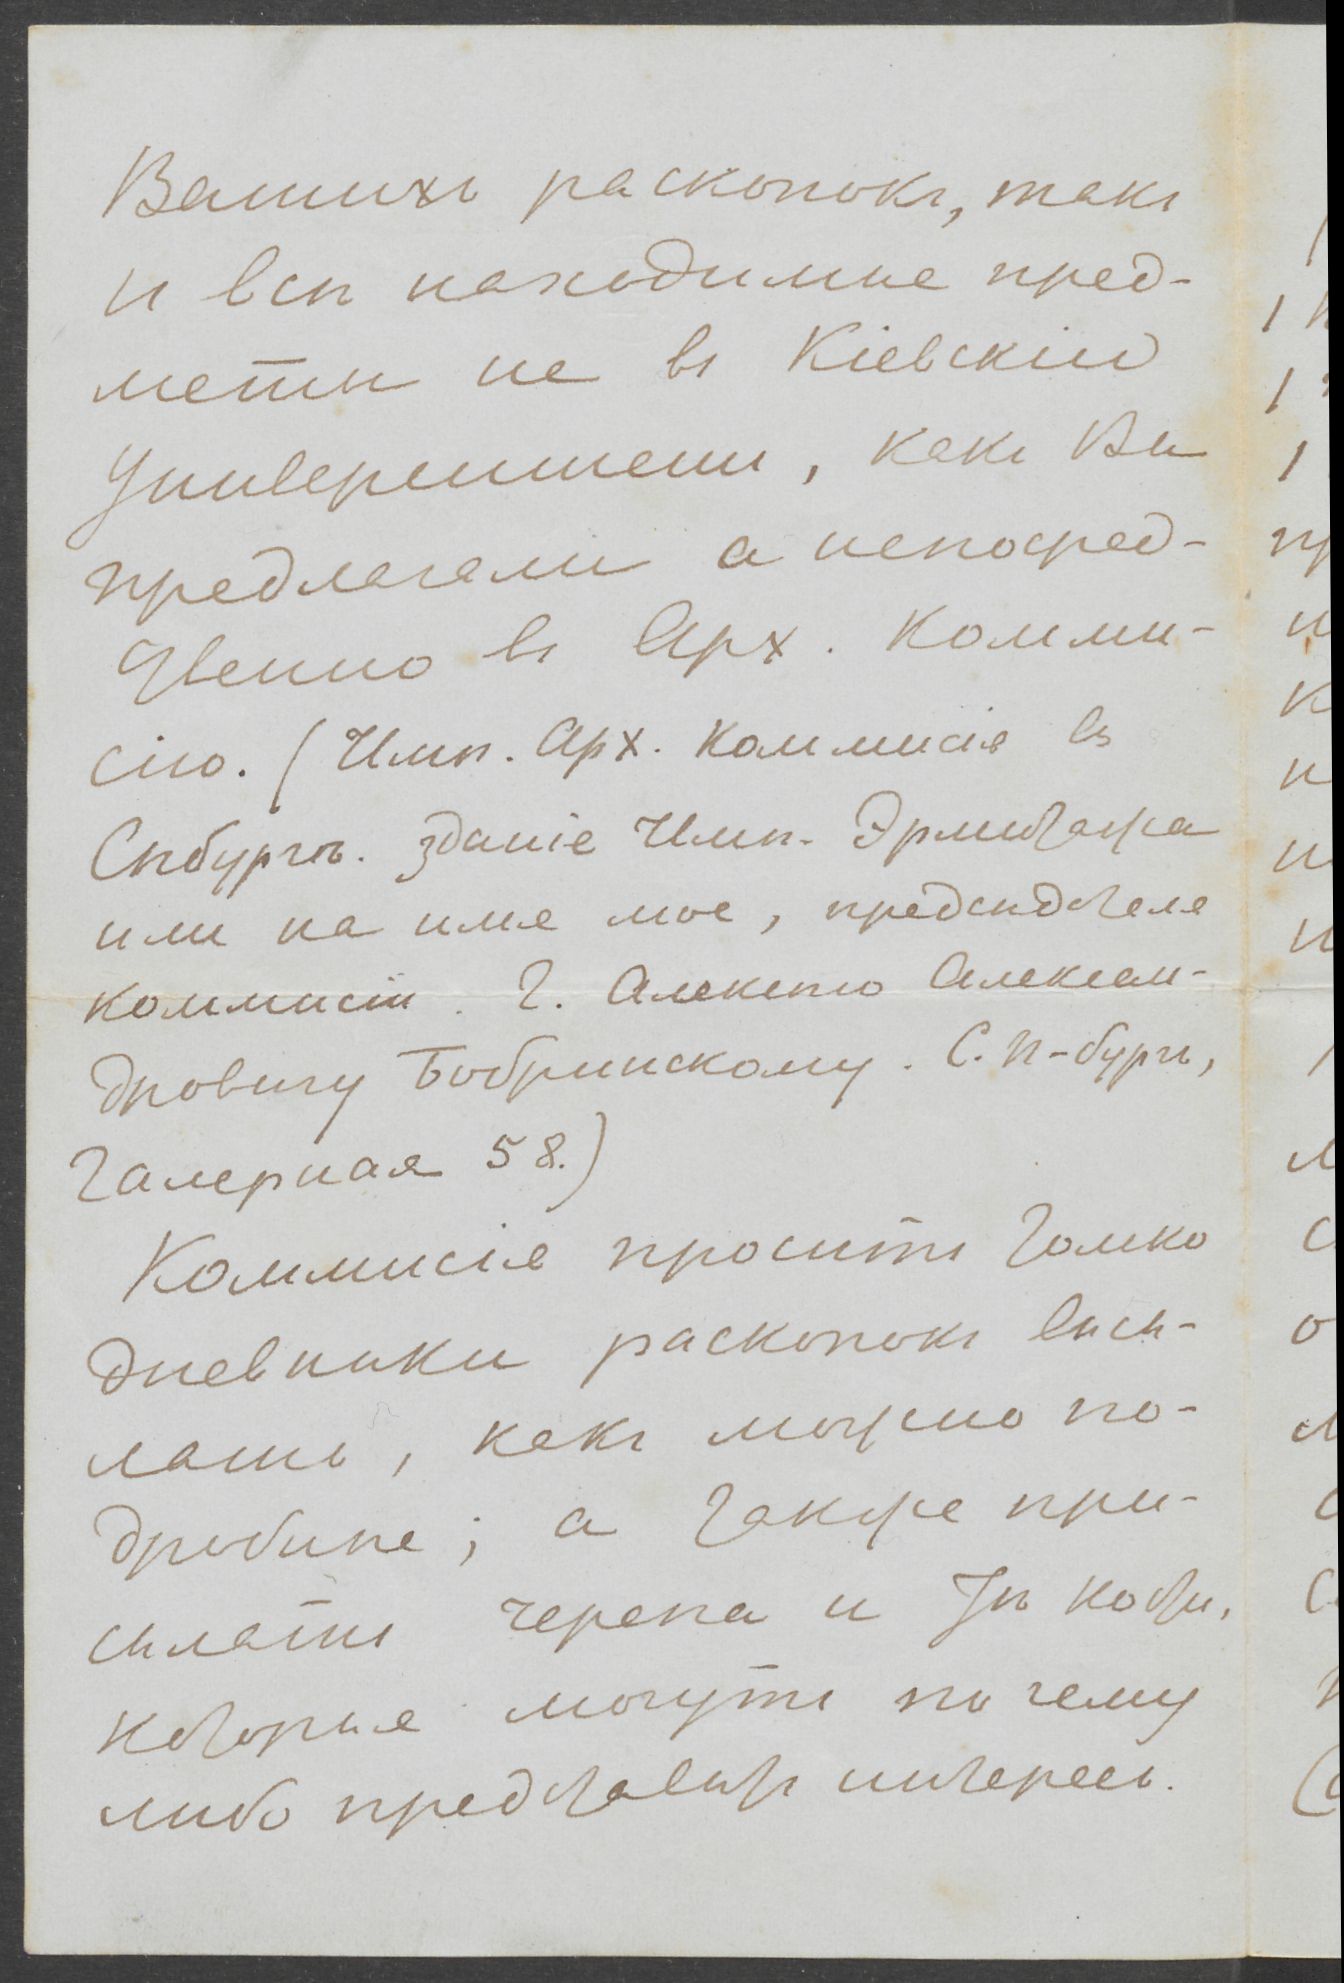 Вашихъ раскопокъ, такъ
и всѣ находимые пред-
меты не въ Кіевскій
Университетъ, какъ Вы
предлагали а непосред-
ственно въ Арх. Комми-
сію. (Имп. Арх. Коммисія въ
Спбургѣ. зданіе Имп. Эрмитажа
или на имя мое, предсѣдателя
коммисіи. Г. Алексѣю Алексан-
дровичу Бобринскому. С. П-бургъ,
Галерная 58.)
Коммисія проситъ только
дневники раскопокъ высы-
лать, какъ можно по-
дробнѣе; а также при-
сылать черепа и тѣ кости,
которые могутъ по чему
либо представить интересъ.